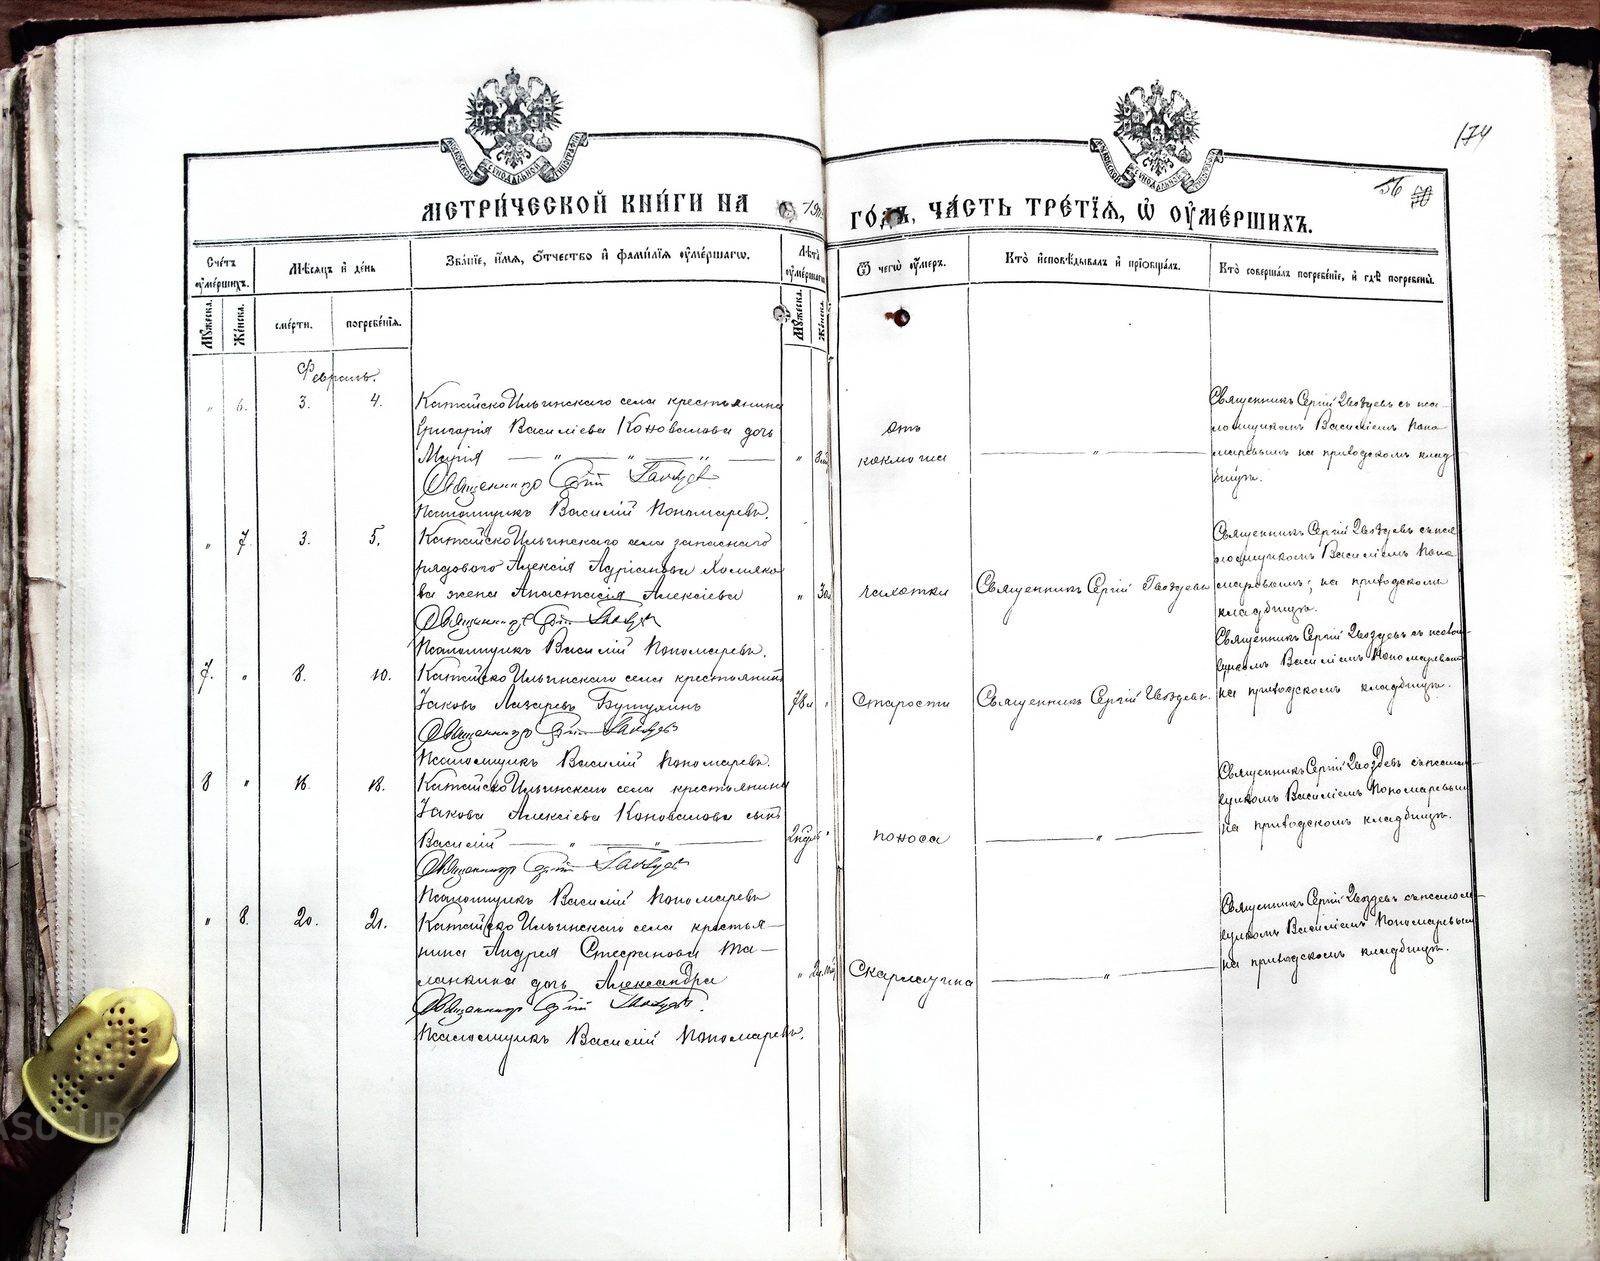 174
56
МОСКОВСКОЙ СѴНОДАЛЬНОЙ ТИПОГРАФІИ
МОСКОВСКОЙ СѴНОДАЛЬНОЙ ТИПОГРАФІИ
МЕТРИ́ЧЕСКОЙ КНИ́ГИ НА 19
ГО́ДЪ, ЧА́СТЬ ТРЕ́ТІѦ, Ѡ҆ ОУ҆МЕ́РШИХЪ.
Сче́тъ оу҆ме́ршихъ.
Мѣ́сяцъ и҆ де́нь
Зва́нїе, и҆́мя, ѻ҆́тчество и҆ фами́лїя оу҆ме́ршагѡ.
Лѣ́та оу҆ме́ршагѡ
Ѿ чегѡ̀ оу҆́меръ.
Кто̀ и҆сповѣ́дывалъ и҆ прїѡбща́лъ.
Кто̀ соверша́лъ погребе́нїе, и҆ гдѣ̀ погребены̀.
Му́жеска.
Же́нска.
сме́рти.
погребе́нїя.
Му́жеска.
Же́нска.
Февраль.
" 6. 3. 4.
Катайско Ильинскаго села крестьянина
Григорія Васильева Коновалова дочь
Марія — " — " — " —
Священникъ Сергій Гвоздевъ
Псаломщикъ Василій Пономаревъ.
"
отъ
коклюша
— " —
Священникъ Сергій Гвоздевъ съ пса-
ломщикомъ Василіемъ Поно-
маревымъ на приходскомъ клад
бищѣ.
" 7. 3. 5.
Катайско Ильинскаго села запаснаго
рядового Алексія Адріанова Холмяко
ва жена Анастасія Алексіева
Священникъ Сергій Гвоздевъ
Псаломщикъ Василій Пономаревъ.
"
чахотки
Священникъ Сергій Гвоздевъ
Священникъ Сергій Гвоздевъ съ пса
ломщикомъ Василіемъ Поно
маревымъ; на приходскомъ
кладбищѣ.
7. " 8. 10.
Катайско Ильинскаго села крестьянинъ
Іаковъ Лазаревъ
Священникъ Сергій Гвоздевъ
Псаломщикъ Василій Пономаревъ.
78 л "
Старости
Священникъ Сергій Гвоздевъ.
Священникъ Сергій Гвоздевъ съ псалом-
щикомъ Василіемъ Пономаревымъ
на приходскомъ кладбищѣ.
8 " 16. 18.
Катайско Ильинскаго села крестьянина
Іакова Алексіева Коновалова сынъ
Василій — " — " —
Священникъ Сергій Гвоздевъ
Псаломщикъ Василій Пономаревъ
"
поноса
— " —
Священникъ Сергій Гвоздевъ съ псалом-
щикомъ Василіемъ Пономаревымъ
на приходскомъ кладбищѣ.
" 8. 20. 21.
Катайско Ильинскаго села крестья-
нина Андрея Стефанова Та-
ланкина дочь Александра
Священникъ Сергій Гвоздевъ.
Псаломщикъ Василій Пономаревъ.
"
Скарлатина
— " —
Священникъ Сергій Гвоздевъ съ псалом-
щикомъ Василіемъ Пономаревымъ
на приходскомъ кладбищѣ.